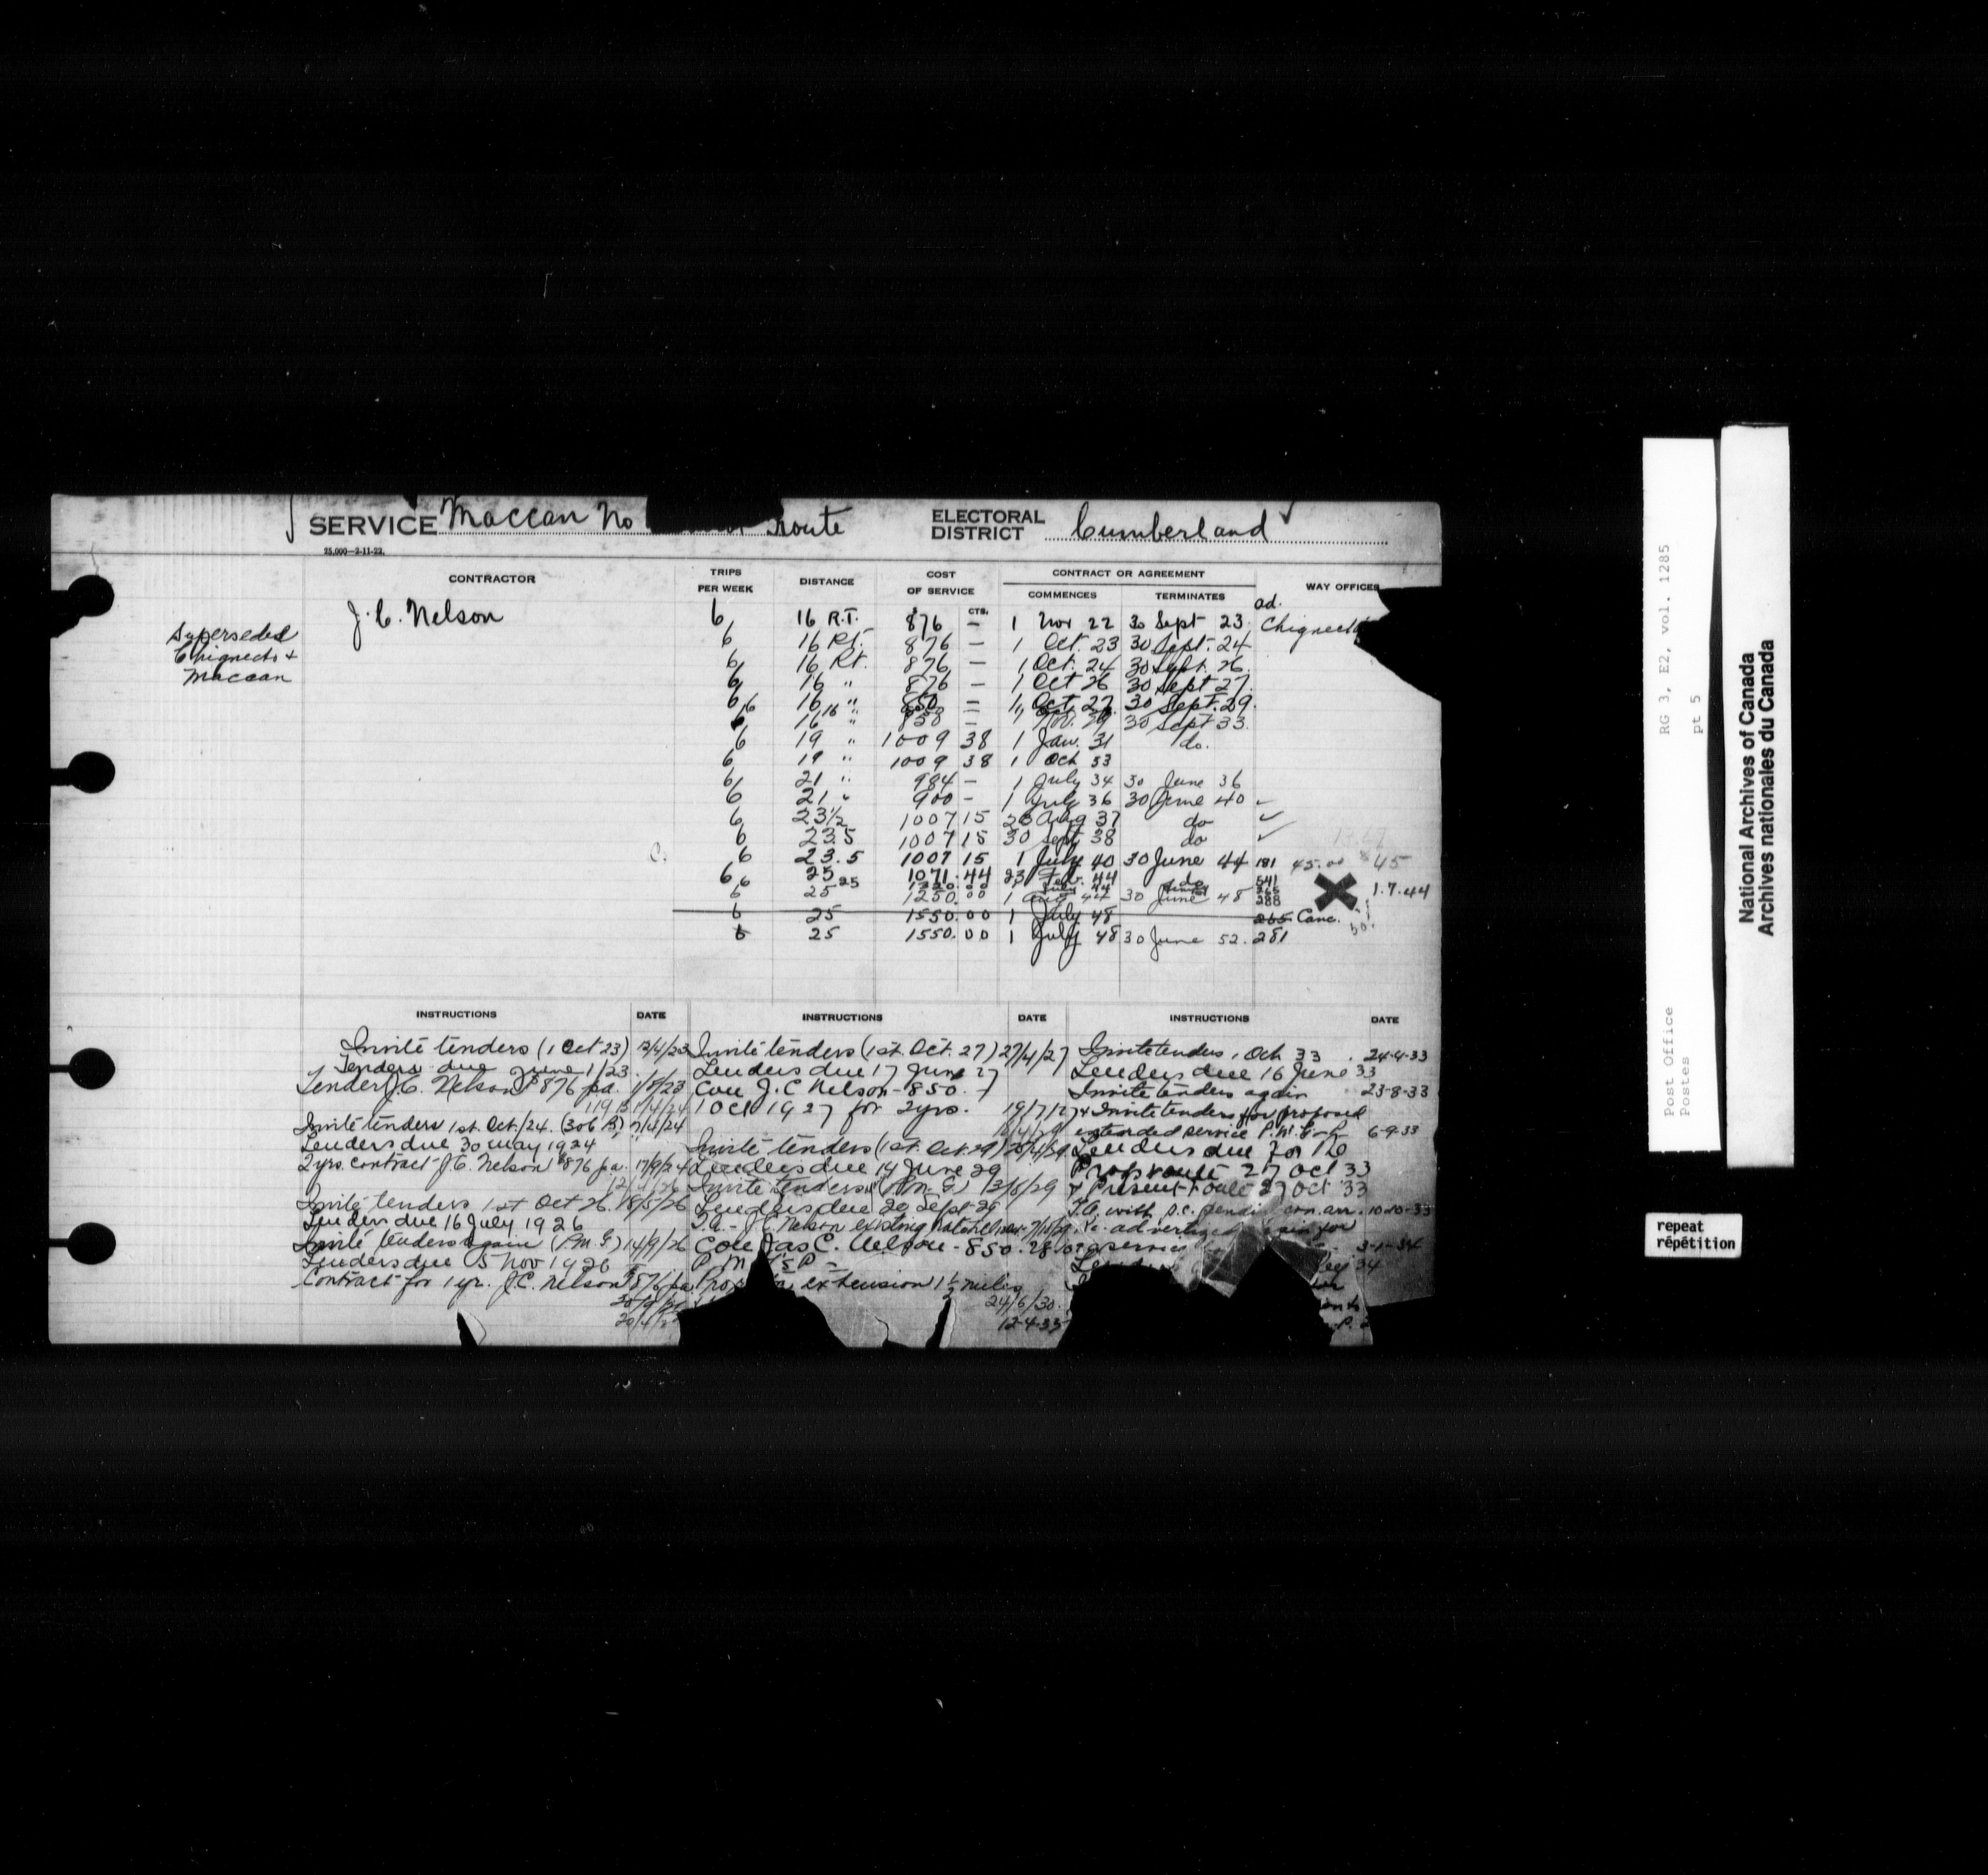 SERVICE Maccan No Route ELECTORAL DISTRICT Cumberland
25,000—2-11-22.
CONTRACTOR TRIPS PER WEEK DISTANCE COST OF SERVICE CONTRACT OR AGREEMENT WAY OFFICES
CTS. COMMENCES TERMINATES
ad.
J. C. Nelson 6 16 R.T. $876 — 1 Nov 22 30 Sept 23 Chignecto
Superseded
Chignecto +
Maccan
6 16 Rt. 876 — 1 Oct. 23 30 Sept. 24
6 16 Rt. 876 — 1 Oct. 24 30 Sept. 26
6 16 " 876 — 1 Oct 26 30 Sept 27
6 16 " 850 — 1 Oct. 27 30 Sept. 29
6 16 " 850 — 1 Nov. 29 30 Sept 33
6 19 " 1009 38 1 Jan. 31 do.
6 19 " 1009 38 1 Oct 33
6 21 " 984 — 1 July 34 30 June 36
6 21 " 900 - 1 July 36 30 June 40
6 23½ 1007 15 26 Aug 37 do
6 23.5 1007 15 30 Sept 38 do
6 23.5 1007 15 1 July 40 30 June 44 181 45.00 45
6 25 1071.44 23 Feb. 44 do 541
6 25 1250.00 1 Aug 44 30 June 48 288 1.7.44
6 25 1550.00 1 July 48 265 Canc.
6 25 1550.00 1 July 48 30 June 52. 281
INSTRUCTIONS DATE INSTRUCTIONS DATE INSTRUCTIONS DATE
Invite tenders (1 Oct 23) 12/4/23
Tenders due June 1/23
Tender J.C. Nelson $876 pa. 1/8/23
119 B 1/4/24
Invite tenders 1st. Oct./24. (306 B) 7/4/24
Tenders due 30 May 1924
2 yrs. contract J.C. Nelson $876 pa. 17/9/24
Invite tenders 1st Oct 26. 18/5/26
Tenders due 16 July 1926
Invite tenders again (P.M.G) 14/9/26
Tenders due 5 Nov 1926
Contract for 1 yr. J.C. Nelson $876 pa.
Invite tenders (1st. Oct. 27) 27/4/27
Tenders due 17 June 27
Con J. C Nelson - 850.
1 Oct 1927 for 2yrs. 19/7/27
Invite tenders (1st. Oct. 29) 25/4/29
Tenders due 14 June 29
Invite tenders (P.M.G) 13/8/29
Tenders due 20 Sept-29
T.A.- J.C. Nelson existing rate
Con Jas C. Nelson - 850.
extension 1½ miles
24/6/30.
12-4-33
Invite tenders 1 Oct 33 . 24-4-33
Tenders due 16 June 33
Invite tenders again 23-8-33
Invite tenders for proposed
extended service 6-9-33
Tenders due for
Prop route 27 Oct 33
Present route 27 Oct 33
T.A. with con. arr. 10-10-33
3-1-34
Post Office RG 3, E2, vol. 1285
Postes pt 5
National Archives of Canada
Archives nationales du Canada
repeat
répétition